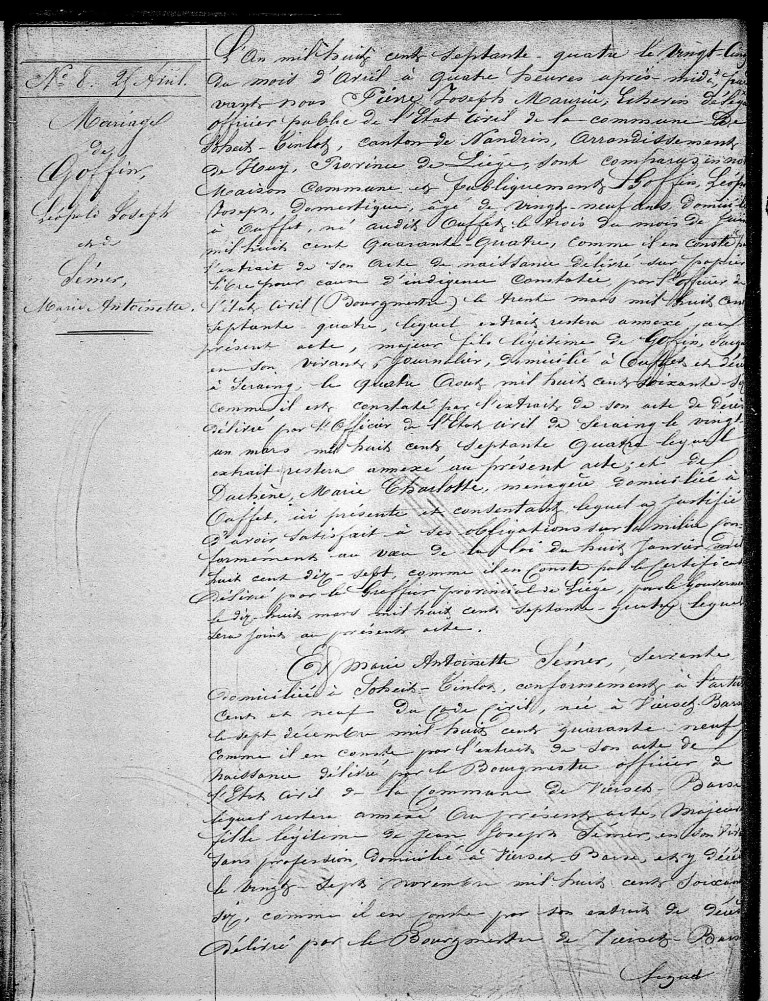 N° 8. 25 Avril.
Mariage
de
Goffin,
Léopold Joseph
et de
Sémer,
Marie Antoinette.
L'An mil huit cent septante-quatre le vingt-cinq
du mois d'Avril à quatre heures après-midi par
vant nous Pierre Joseph Echevin délégué
officier public de l'Etat civil de la commune de
Soheit-Tinlot, canton de Nandrin, Arrondissement
de Huy, Province de Liége, sont comparus en notre
Maison Commune et publiquement Goffin, Léopold
Joseph, Domestique, âgé de vingt-neuf ans domicilié
à Ouffet, né audit Ouffet le trois du mois de
mil huit cent quarante-quatre, comme il en conste par
l'extrait de son acte de naissance délivré sur papier
libre pour cause d'indigence constatée par l'officier de
l'état civil (Bourgmestre) le trente mars mil huit cent
septante-quatre, lequel extrait restera annexé au
présent acte, majeur fils légitime de Goffin,
en son vivant journalier, domicilié à Ouffet et décédé
à Seraing, le quatre Aout mil huit cent soixante
comme il est constaté par l'extrait de son acte de décès
délivré par l'Officier de l'Etat civil de Seraing le vingt
un mars mil huit cent septante quatre lequel
extrait restera annexé au présent acte; et de
Duchêne, Marie Charlotte, menagère domiciliée à
Ouffet, ici présente et consentant, lequel a justifié
d'avoir satisfait à ses obligations sur la milice con
formément au vœu de la loi du huit Janvier mil
huit cent dix-sept, comme il en conste par le Certificat
délivré par le Greffier provincial de Liége, pour le Gouverneur
le dix-huit mars mil huit cent septante quatre lequel
sera joint au présent acte.
Et Marie Antoinette Sémer, servante
domiciliée à Soheit-Tinlot, conformément à l'article
cent et neuf du code civil, née à Vierset-Barse
le sept décembre mil huit cent quarante-neuf
comme il en conste par l'extrait de son acte de
naissance délivré par le Bourgmestre officier de
l'Etat civil de la Commune de Vierset-Barse
lequel restera annexé au présent acte, Majeure
fille légitime de Jean Joseph Sémer, en son vivant
sans profession, domicilié à Vierset-Barse, et y décédé
le vingt-sept novembre mil huit cent soixante
six, comme il en conste par son extrait de décès
délivré par le Bourgmestre de Vierset-Barse
lequel